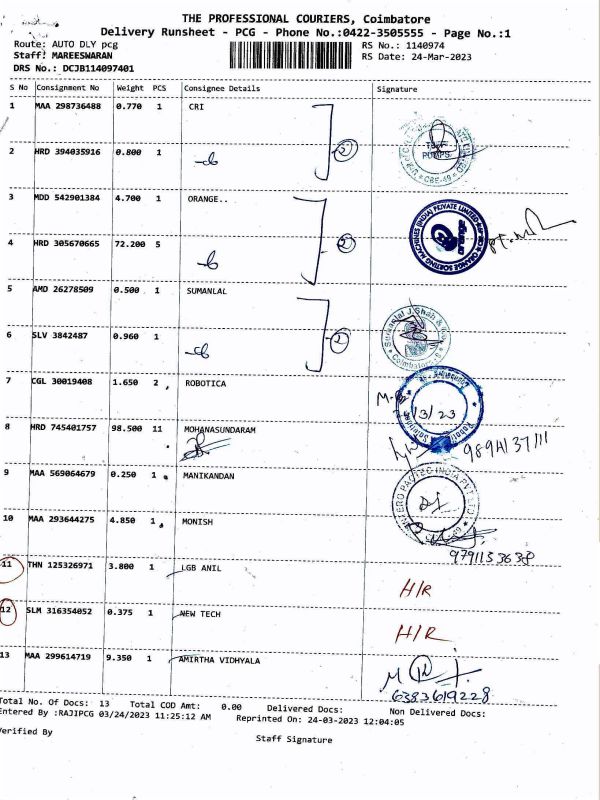 THE PROFESSIONAL COURIERS, Coimbatore
Delivery Runsheet - PCG - Phone No.:0422-3505555 - Page No.:1
Route: AUTO DLY pcg RS No.: 1140974
Staff: MAREESWARAN RS Date: 24-Mar-2023
DRS No.: DCJB114097401
S No Consignment No Weight PCS Consignee Details Signature
1 MAA 298736488 0.770 1 CRI
2
PUMPS
CBE-49
2 HRD 394035916 0.800 1
3 MDD 542901384 4.700 1 ORANGE..
ORANGE SORTING MACHINES (INDIA) PRIVATE LIMITED
4 HRD 305670665 72.200 5
2
5 AMD 26278509 0.500 1 SUMANLAL
Sumanlal J. Shah & Co
Coimbatore
6 SLV 3842487 0.960 1
2
7 CGL 30019408 1.650 2 ROBOTICA
/3/23
8 HRD 745401757 98.500 11 MOHANASUNDARAM
9 MAA 569064679 0.250 1 MANIKANDAN
PACTEC INDIA PVT LTD
10 MAA 293644275 4.850 1 MONISH
9791153638
11 THN 125326971 3.800 1 LGB ANIL
H/R
12 SLM 316354052 0.375 1 NEW TECH
H/R
13 MAA 299614719 9.350 1 AMIRTHA VIDHYALA
6383619228
Total No. Of Docs: 13 Total COD Amt: 0.00 Delivered Docs: Non Delivered Docs:
Entered By :RAJIPCG 03/24/2023 11:25:12 AM Reprinted On: 24-03-2023 12:04:05
Verified By Staff Signature